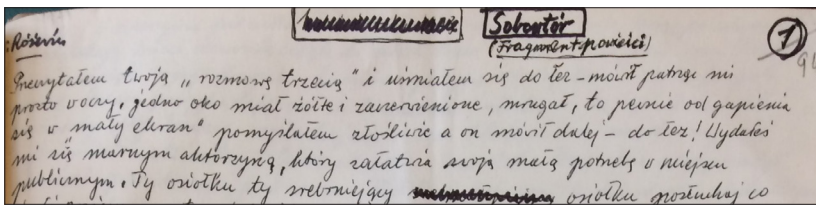 Sobowtór
(Fragment powieści)
1
Przeczytałem twoją „rozmowę trzecią" i uśmiałem się do łez – mówił patrząc mi
prosto w oczy. jedno oko miał żółte i zaczerwienione, mrugał, to pewnie od gapienia
się w „mały ekran" pomyślałem złośliwie a on mówił dalej – do łez! Wydałeś
mi się marnym aktorzyną, który załatwia swoją małą potrzebę w miejscu
publicznym. Ty osiołku ty srebrniejący osiołku posłuchaj co